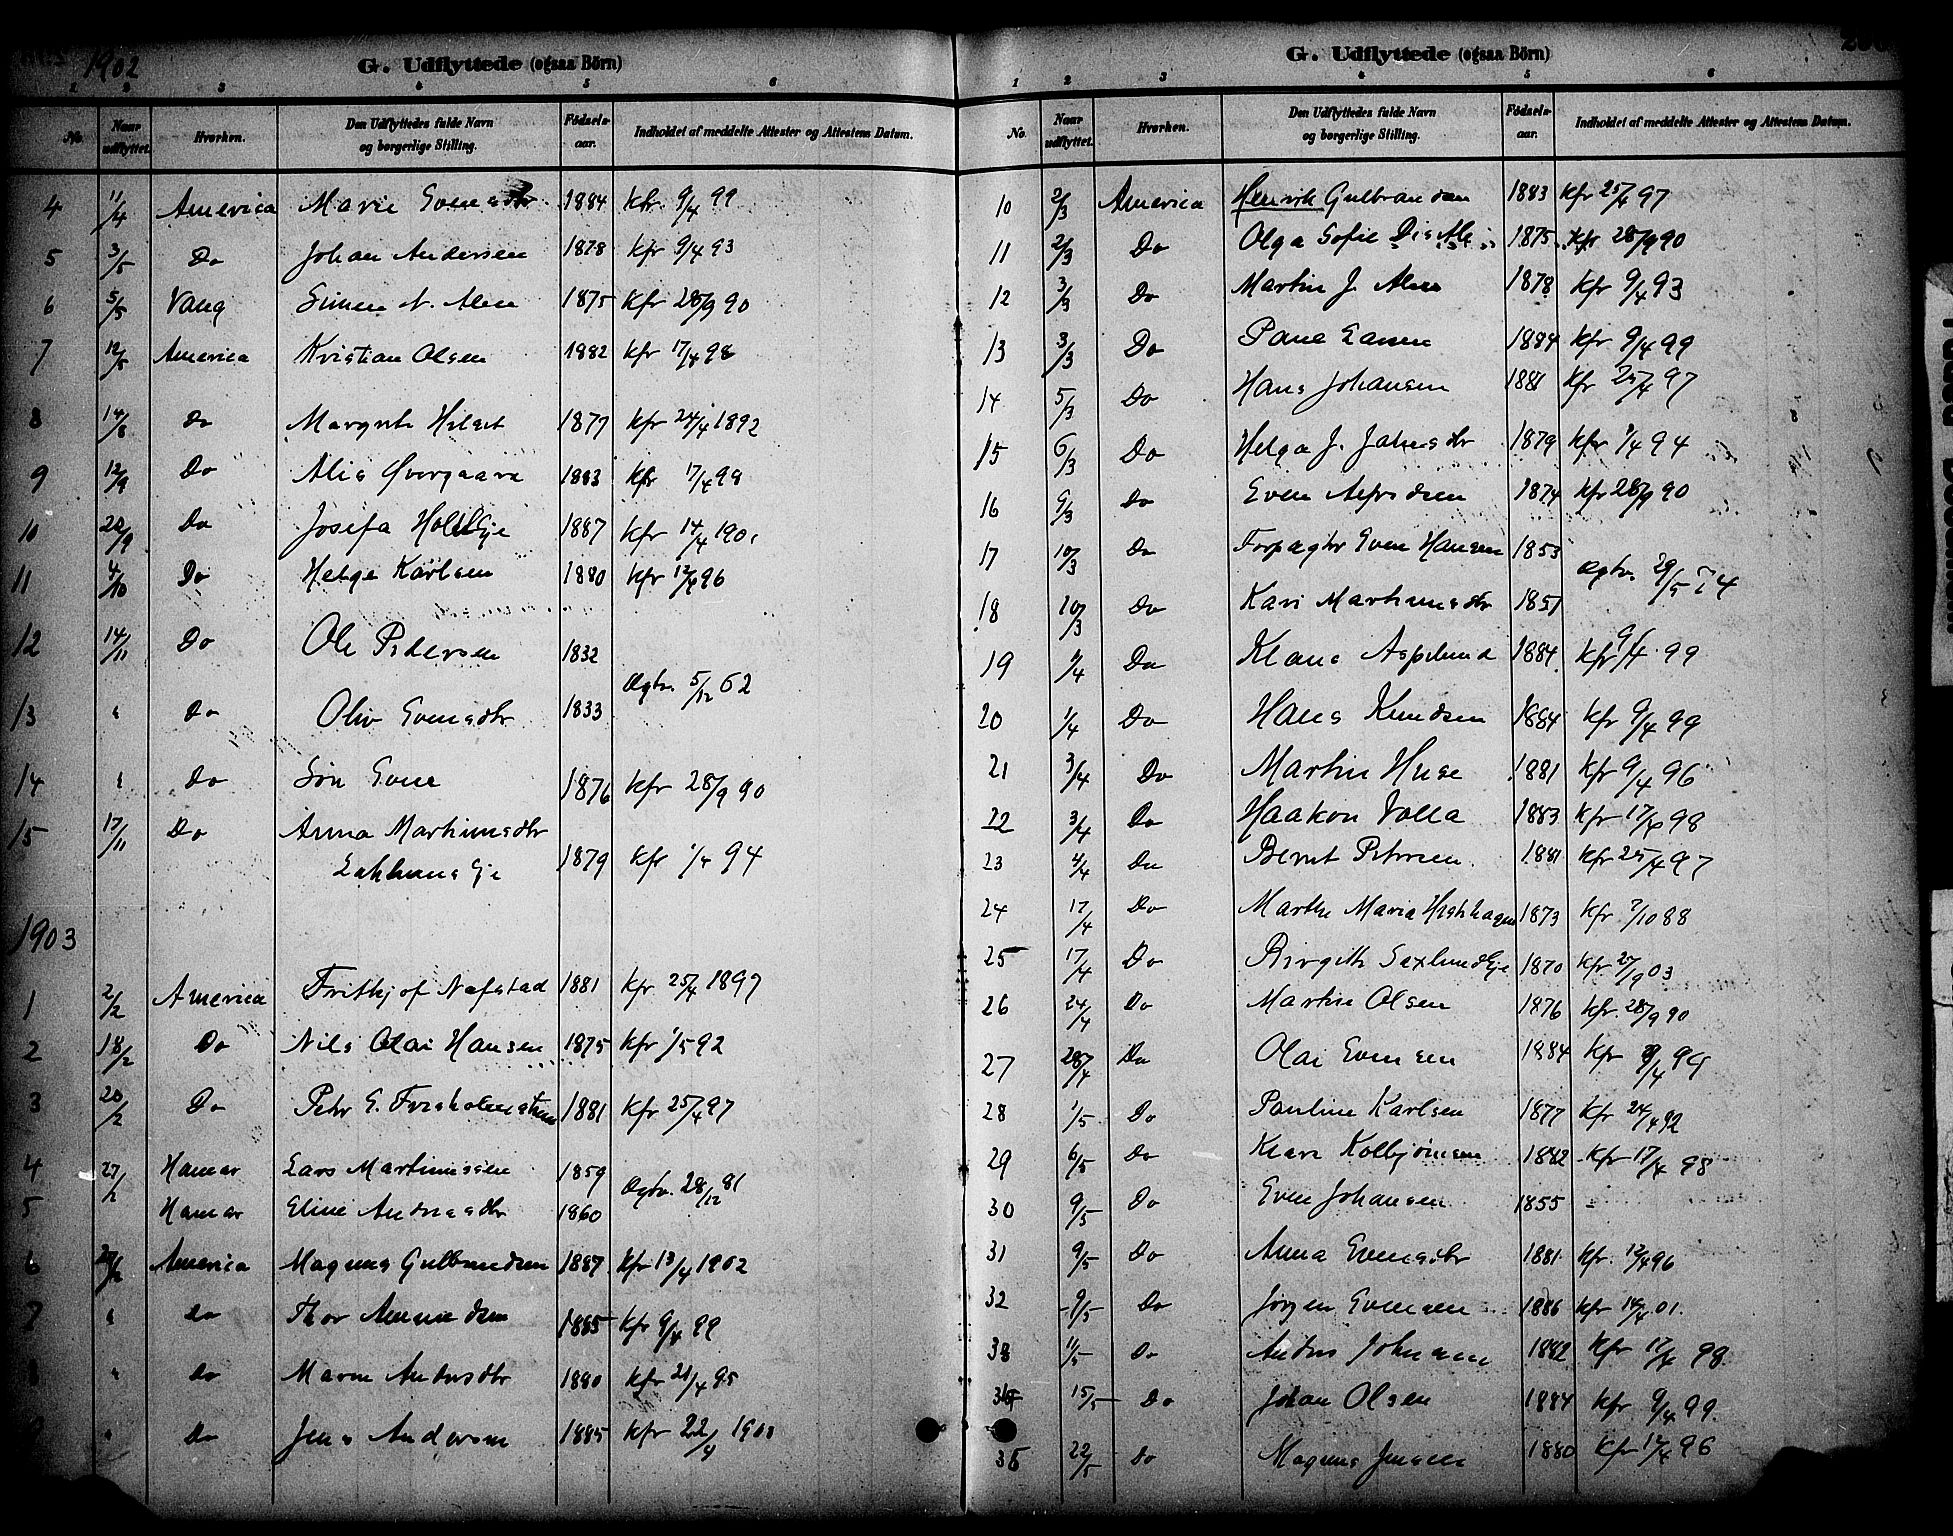 1902
G. Udflyttede (ogsaa Börn)
1 2 3 4 5 6
No. Naar udflyttet. Hvorhen. Den Udflyttedes fulde Navn og borgerlige Stilling. Fødsels-aar. Indholdet af meddelte Attester og Attestens Datum.
4 11/4 America Marie Evensdtr 1884 Kfr. 9/4 99
5 3/5 Do Johan Andersen 1878 Kfr 9/4 93
6 5/5 Vang Simen N. Alm 1875 Kfr 28/9 90
7 12/5 America Kristian Olsen 1882 Kfr 17/4 98
8 14/8 Do Margrethe 1877 Kfr 24/4 1892
9 12/9 Do 1883 Kfr 17/4 98
10 20/9 Do Josefa 1887 Kfr 14/4 1901
11 4/10 Do Helge Karlsen 1880 Kfr 12/4 96
12 14/11 Do Ole Pedersen 1832
Ægtv. 5/12 62
13 " Do Oliv Evensdtr 1833
14 " Do Søn Even 1876 Kfr 28/9 90
15 17/11 Do Anna Martinusdtr
1879 Kfr 1/4 94
1903
1 2/2 America Frithjof Nafstad 1881 Kfr 25/4 1897
2 18/2 Do Nils Olai Hansen 1875 Kfr 1/5 92
3 20/2 Do Peter E. 1881 Kfr 25/4 97
4 27/2 Hamar Lars Martinussen 1859
Ægtv. 28/12 81
5 Hamar Eline Andreasdtr 1860
6 27/2 America Magnus Gulbrandsen 1887 Kfr 13/4 1902
7 " Do Thor Amundsen 1885 Kfr 9/4 99
8 " Do Maren Andersdtr 1880 Kfr 21/4 95
9 " Do Jens Andersen 1885 Kfr 22/4 1900
G. Udflyttede (ogsaa Börn)
1 2 3 4 5 6
No. Naar udflyttet. Hvorhen. Den Udflyttedes fulde Navn og borgerlige Stilling. Fødsels-aar. Indholdet af meddelte Attester og Attestens Datum.
10 2/3 America Henrik Gulbrandsen 1883 Kfr 25/4 97
11 2/3 Do Olga Sofie 1875 Kfr 28/9 90
12 3/3 Do Martin J. Alm 1878 Kfr 9/4 93
13 3/3 Do Larsen 1884 Kfr 9/4 99
14 5/3 Do Hans Johansen 1881 Kfr 25/4 97
15 6/3 Do Helga J. 1879 Kfr 1/4 94
16 9/3 Do Even 1874 Kfr 28/9 90
17 10/3 Do Forpagter Even Hansen 1853
Ægtv. 29/5 74
18 10/3 Do Kari Martinusdtr 1851
19 1/4 Do Klaus Aspelund 1884 Kfr 9/4 99
20 1/4 Do Hans Knudsen 1884 Kfr 9/4 99
21 3/4 Do Martin Huse 1881 Kfr 9/4 96
22 3/4 Do Haakon Volla 1883 Kfr 17/4 98
23 4/4 Do Bernt Petersen 1881 Kfr 25/4 97
24 17/4 Do Marthe Maria 1873 Kfr. 7/10 88
25 17/4 Do Birgithe Saxlundeje 1870 Kfr 27/9 03
26 24/4 Do Martin Olsen 1876 Kfr. 28/9 90
27 28/4 Do Olai Evensen 1884 Kfr 9/4 99
28 1/5 Do Pauline Karlsen 1877 Kfr 24/4 92
29 6/5 Do Karen Kolbjørnsen 1882 Kfr 17/4 98
30 9/5 Do Even Johansen 1855 -
31 9/5 Do Anna Evensdtr 1881 Kfr. 12/4 96
32 9/5 Do Jørgen Evensen 1886 Kfr 14/4 01.
33 11/5 Do Anders Johansen 1882 Kfr 17/4 98
34 15/5 Do Johan Olsen 1884 Kfr 9/4 99.
35 22/5 Do Magnus Jensen 1880 Kfr 12/4 96